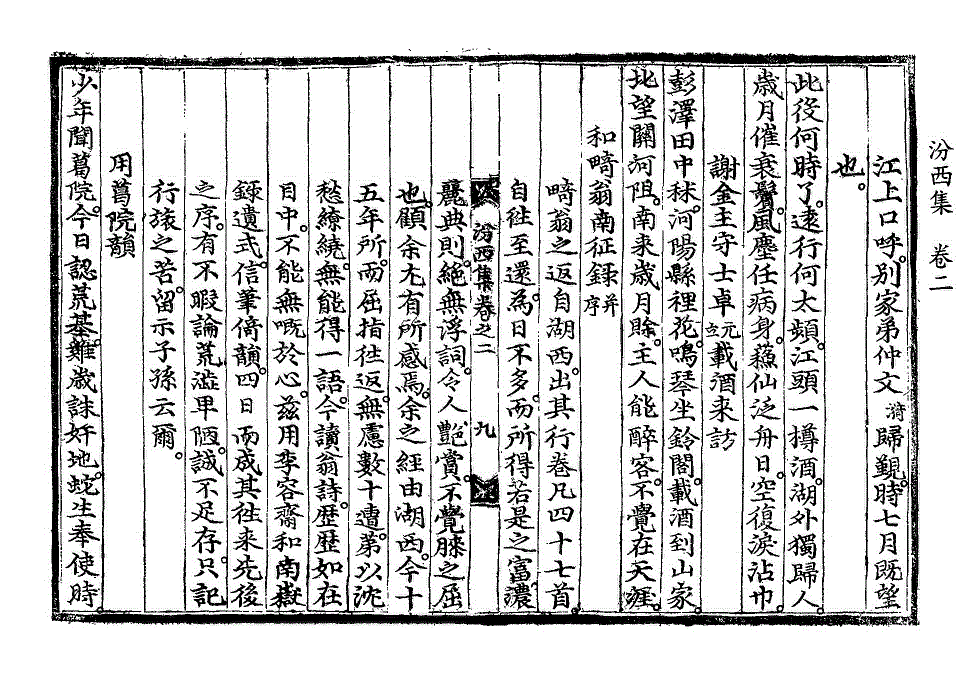 汾西集　卷二
江上口呼。別家弟仲文漪歸覲。時七月既望
也。
此役何時了。遠行何太頻。江頭一樽酒。湖外獨歸人。
歲月催衰鬢。風塵任病身。蘓仙泛舟日。空復淚沾巾。
謝金主守士卓元立載酒來訪
彭澤田中秫。河陽縣裡花。鳴琴坐鈴閤。載酒到山家。
北望關河阻。南來歲月賖。主人能醉客。不覺在天涯。
和畸翁南征錄幷序
畸翁之返自湖西。出其行卷凡四十七首。
自徃至還。爲日不多。而所得若是之富。濃
汾西集卷之二　九
麗典則。絶無浮詞。令人艶賞。不覺膝之屈
也。顧余尤有所感焉。余之經由湖西。今十
五年所。而屈指徃返。無慮數十遭。第以沈
愁繚繞。無能得一語。今讀翁詩。歷歷如在
目中。不能無嘅於心。玆用李容齋和南嶽
錄遺式。信筆倚韻。四日而成。其徃來先後
之序。有不暇論。荒澁卑陋。誠不足存。只記
行旅之苦。留示子孫云爾。
用葛院韻
少年聞葛院。今日認荒基。雞歲誅奸地。蛇生奉使時。